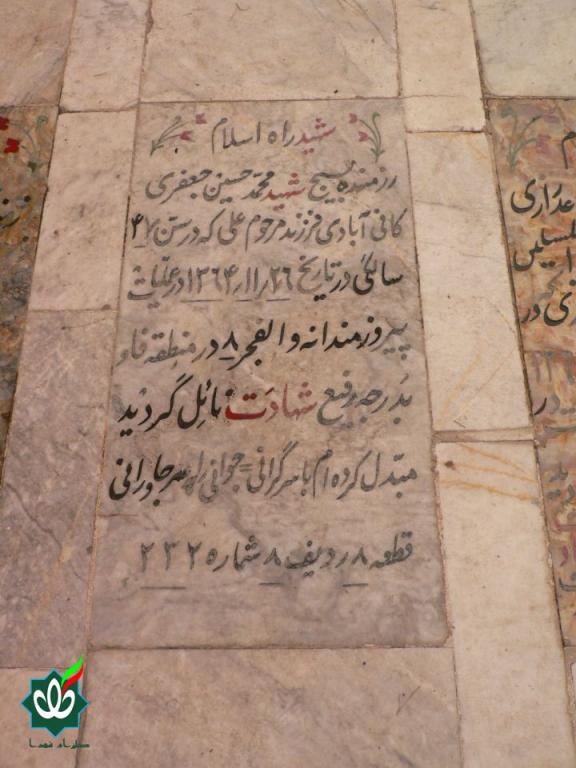 شهید راه اسلام
رزمنده بسیج شهید محمد حسین جعفری
کانی آبادی فرزند مرحوم علی که در سن ۴۷
سالگی در تاریخ ۲۶ر۱۱ر۱۳۶۴ در عملیات
پیروزمندانه والفجر ۸ در منطقه فاو
بدرجه رفیع شهادت نائل گردید
مبتدل کرده ام با سرگرانی = جوانی را به
قطعه ۸ ردیف ۸ شماره ۲۳۲
م
عداری
ری در